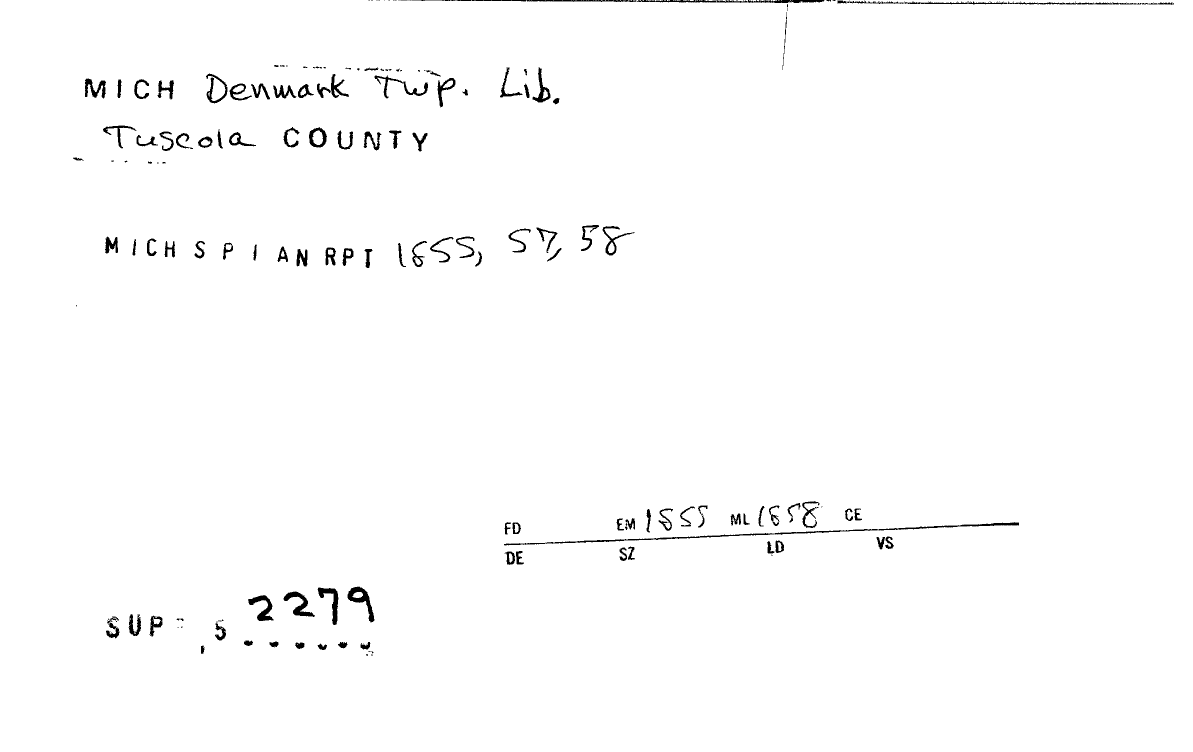 MICH Denmark Twp. Lib.
Tuscola COUNTY
MICH S P I AN RPT 1855, 57, 58
FD EM 1855 ML 1858 CE
DE SZ LD VS
SUP= ,5 2279